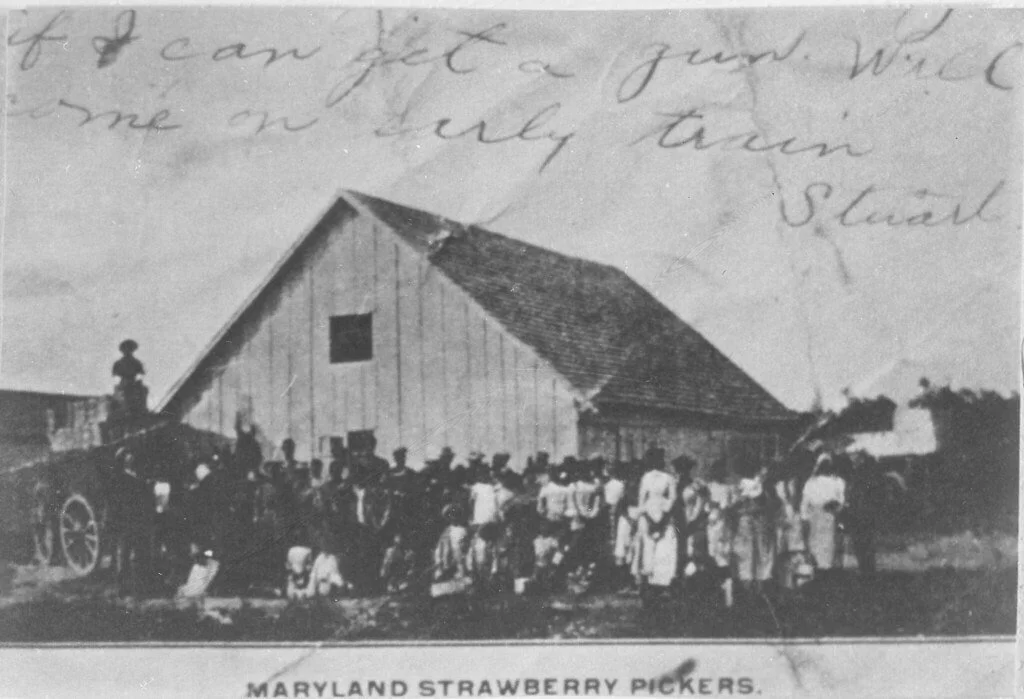 if I can get a gun. Will
come on early train
Stuart
MARYLAND STRAWBERRY PICKERS.